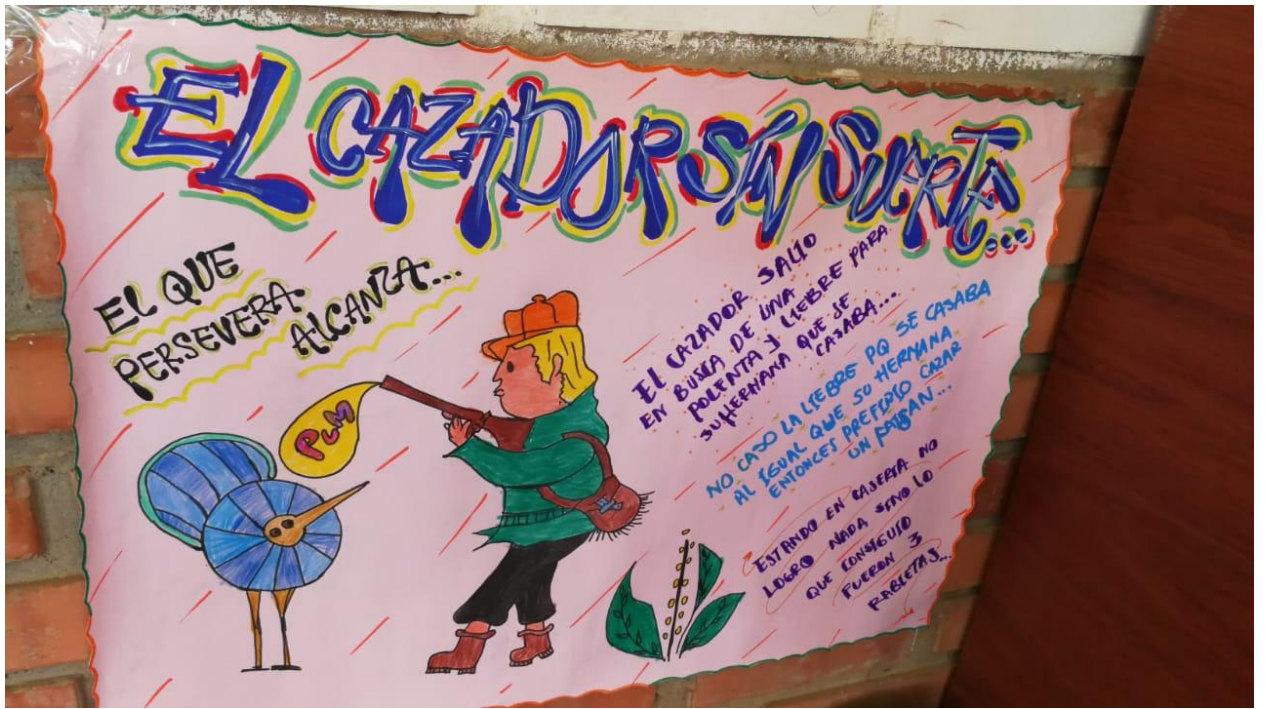 EL CAZADOR SIN SUERTE...
EL QUE
PERSEVERA
ALCANZA...
PUM
EL CAZADOR SALIO
EN BUSCA DE UNA
POLENTA Y LIEBRE PARA
SU HERMANA QUE SE
CASABA...
NO CASO LA LIEBRE PQ SE CASABA
AL IGUAL QUE SU HERMANA
ENTONCES PREFIRIO CAZAR
UN FAISAN...
ESTANDO EN CASERIA NO
LOGRO NADA SINO LO
QUE CONSIGUIO
FUERON 3
RABIETAS...